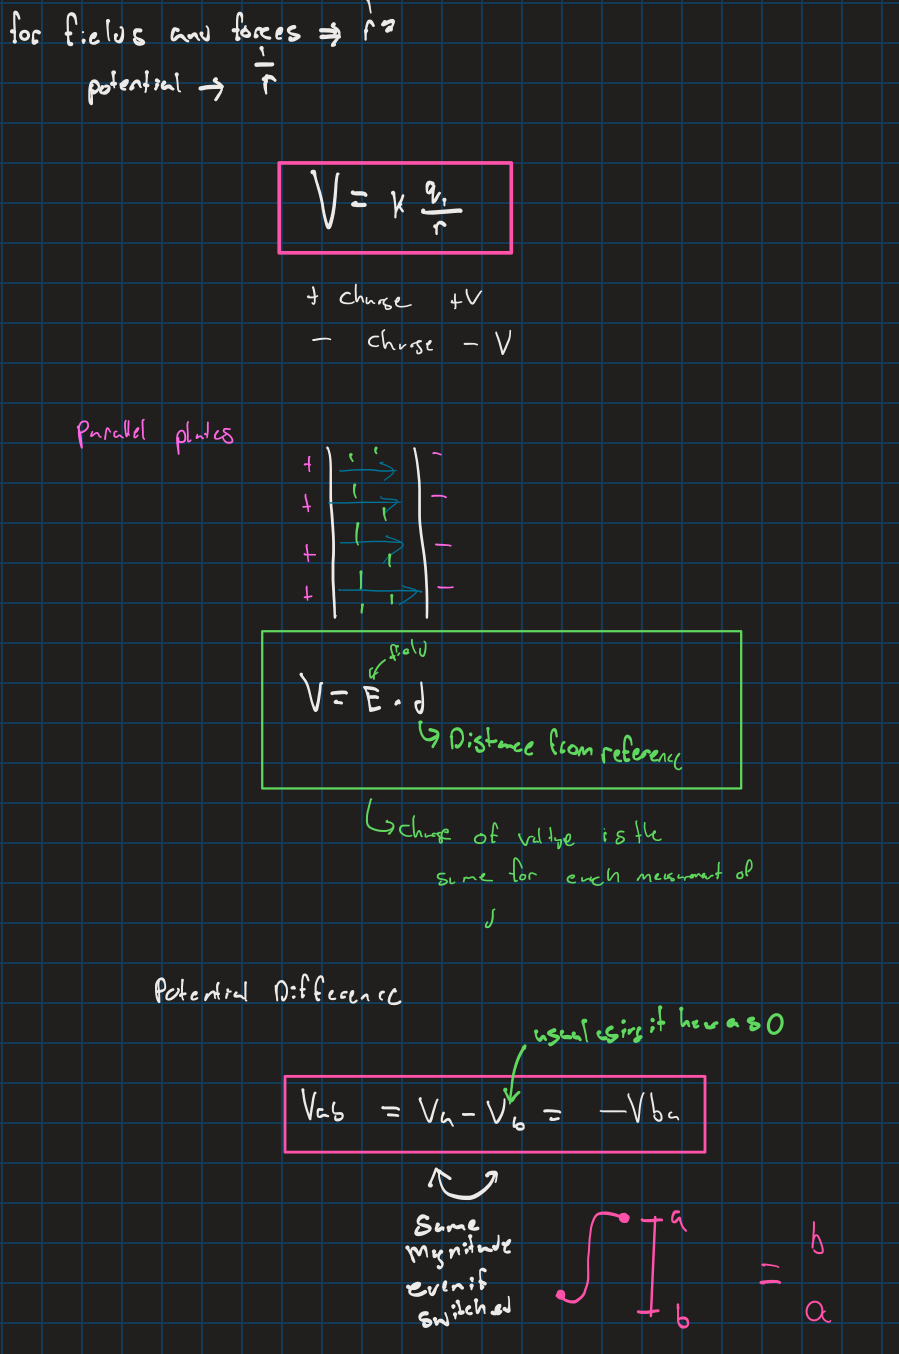 for fields and forces ⇒ 1/r²
potential → 1/r
V = k q₁/r
+ charge +V
- charge - V
Parallel plates
+ -
+ -
+ -
+ -
field
V = E · d
↳ Distance from reference
↳ change of voltage is the
same for each measurement of
d
Potential Difference
usual using it here as 0
Vab = Va - Vb = -Vba
Same
Magnitude
even if
switched
∫ a b = b a